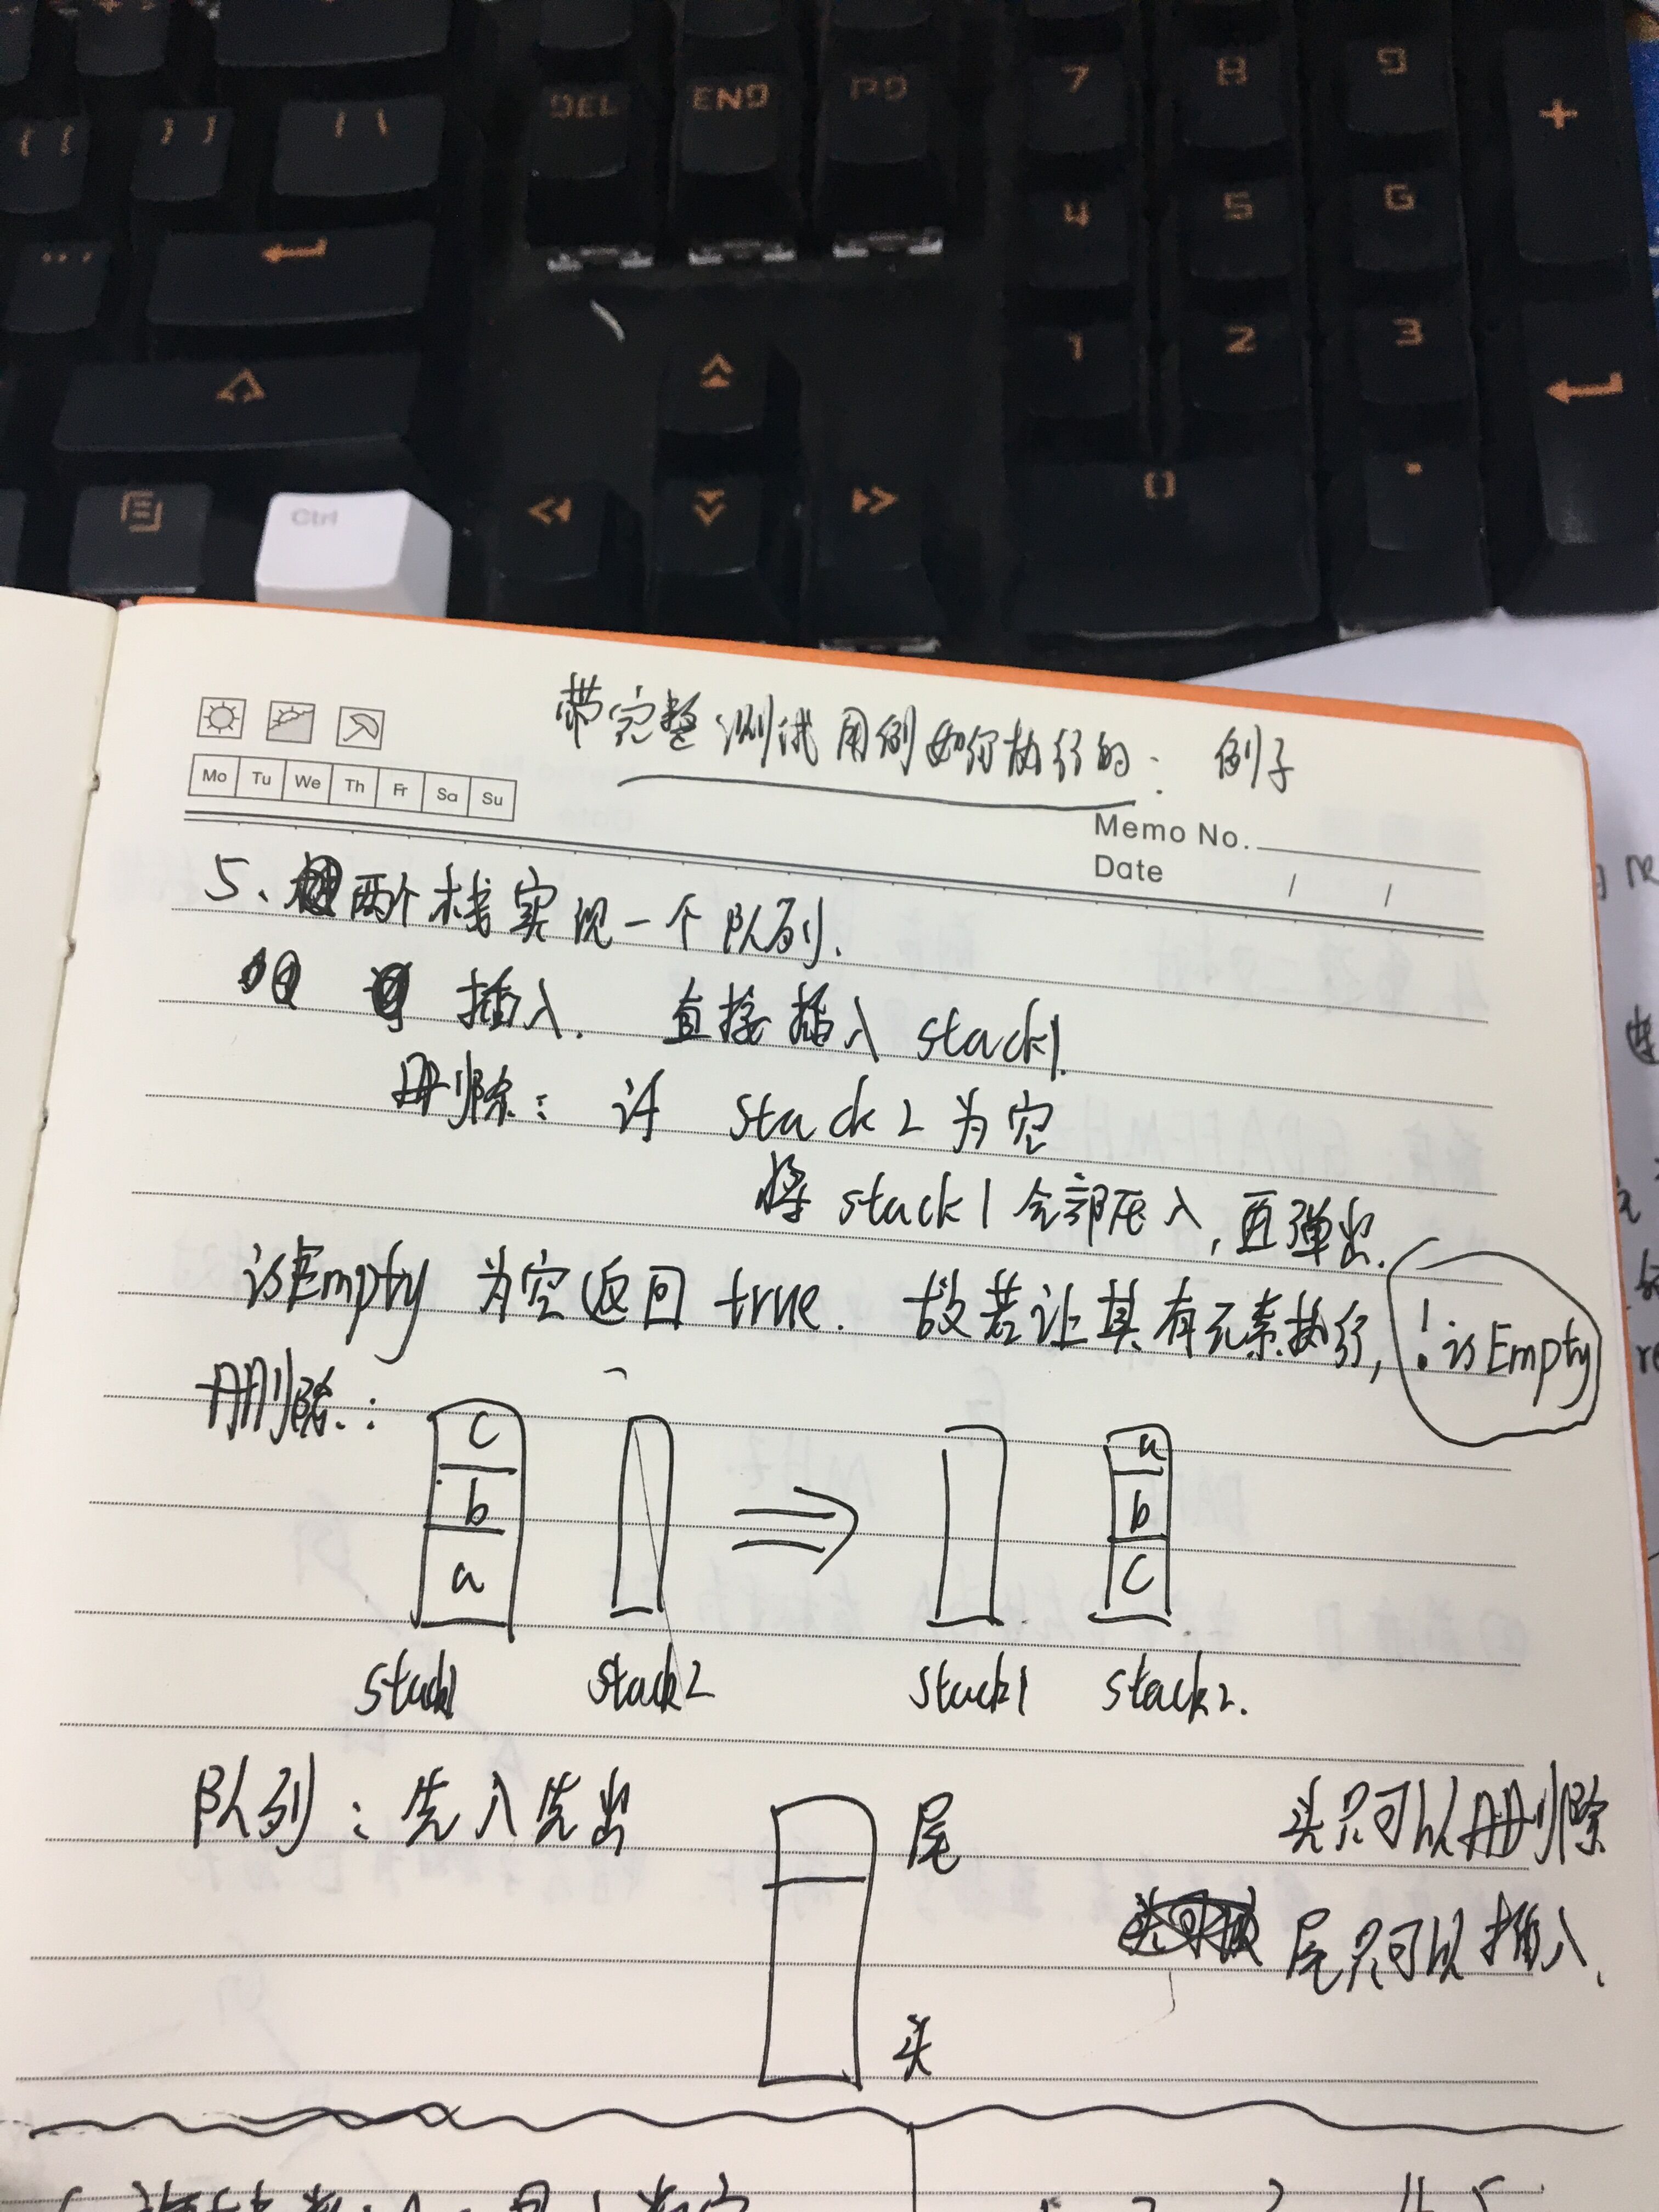 DEL END PD 7 8 9 +
{ [ } ] | \
4 5 6
1 2 3
Ctrl
带完整测试用例如何执行的: 例子
Mo Tu We Th Fr Sa Su
Memo No.
Date / /
5、两个栈实现一个队列.
插入. 直接插入 stack1.
删除: 让 stack2 为空
将 stack1 全部压入,再弹出.
isEmpty 为空返回 true. 故若让其有元素执行, !isEmpty
删除:
c a
b b
a c
stack1 stack2 stack1 stack2.
队列: 先入先出 尾 头只可以删除
尾只可以插入.
头